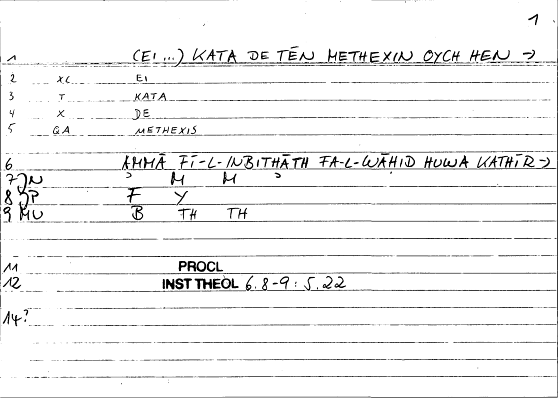 1
1 (EI ...) KATA DE TĒN METHEXIN OYCH HEN →
2 XC EI
3 T KATA
4 X DE
5 QA METHEXIS
6 AMMĀ FĪ-L-INBITHĀTH FA-L-WĀHID HUWA KATHĪR →
7 N ʾ M M ʾ
8 P F Y
9 MU B TH TH
11 PROCL
12 INST THEOL 6.8-9 : 5.22
14?